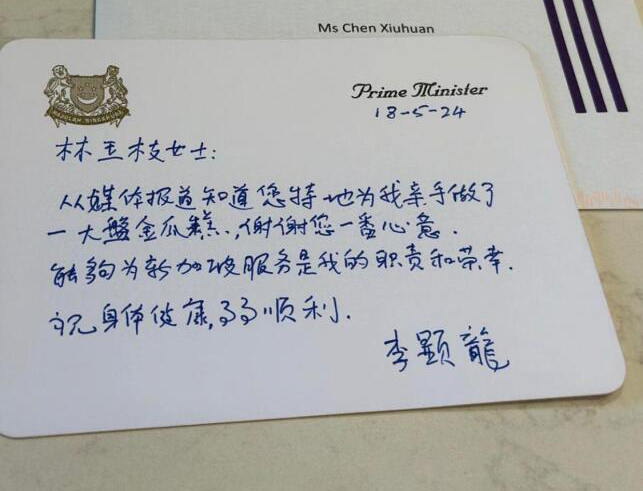 Ms Chen Xiuhuan
MAJULAH SINGAPURA
Prime Minister
18-5-24
林玉枝女士:
从媒体报道知道您特地为我亲手做了
一大盤金瓜糕,谢谢您一番心意.
能夠为新加坡服务是我的职责和荣幸.
祝身体健康,事事顺利.
李顯龍